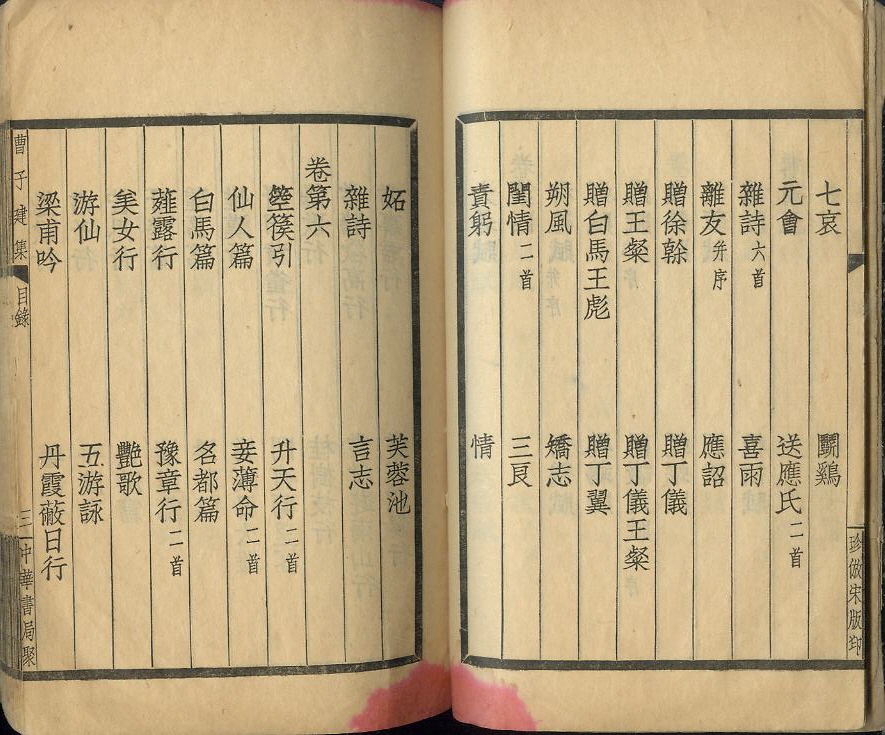 珍倣宋版印
七哀 鬭鷄
元會 送應氏二首
雜詩六首 喜雨
離友并序 應詔
贈徐幹 贈丁儀
贈王粲 贈丁儀王粲
贈白馬王彪 贈丁翼
朔風 矯志
閨情二首 三良
責躬 情
妬 芙蓉池
雜詩 言志
卷第六
箜篌引 升天行二首
仙人篇 妾薄命二首
白馬篇 名都篇
薤露行 豫章行二首
美女行 艷歌
游仙 五游詠
梁甫吟 丹霞蔽日行
曹子建集 目錄 三 中華書局聚